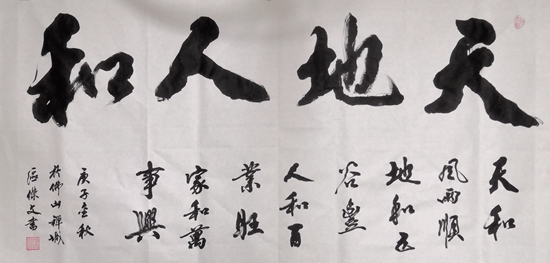 天地人和
天和
風雨順
地和五
谷豐
人和百
業旺
家和萬
事興
庚子金秋
於佛山禪城
傑文書